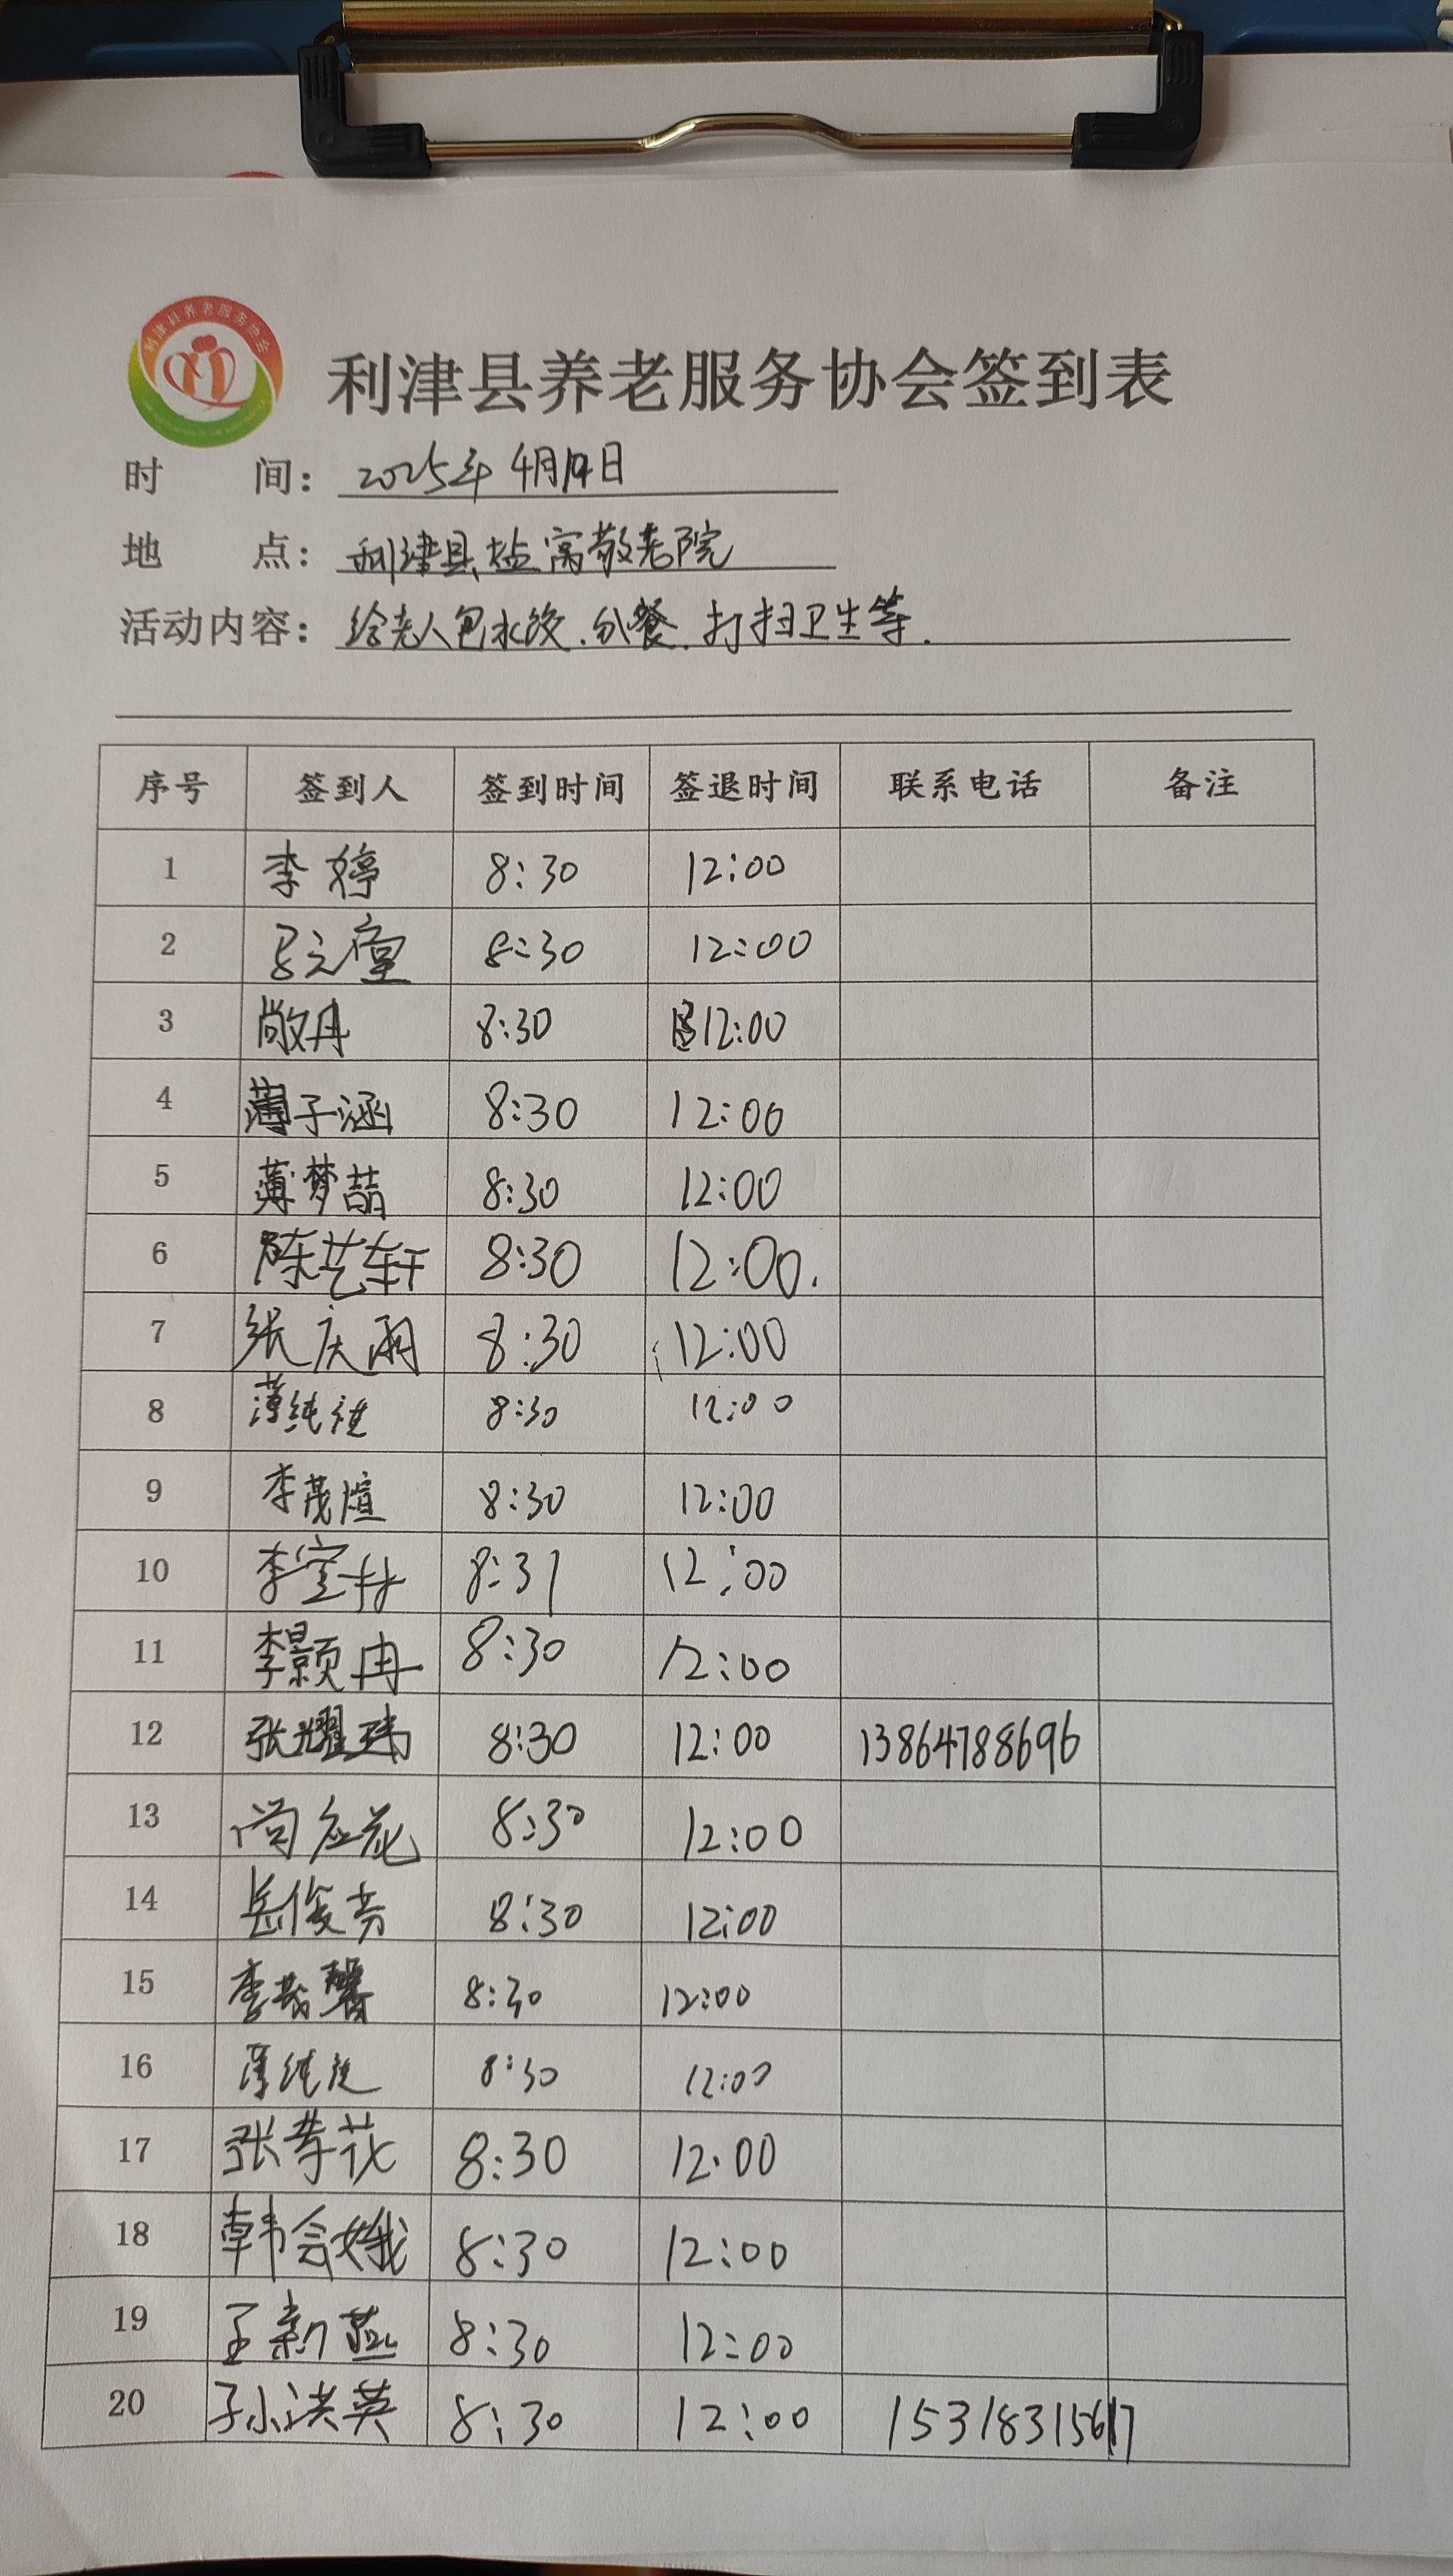 利津县养老服务协会
利津县养老服务协会签到表
时 间: 2025年4月19日
地 点: 利津县盐窝敬老院
活动内容: 给老人包水饺.分餐.打扫卫生等.
序号 签到人 签到时间 签退时间 联系电话 备注
1 李婷 8:30 12:00
2 8:30 12:00
3 尚文丹 8:30 12:00
4 薄子涵 8:30 12:00
5 薄梦喆 8:30 12:00
6 陈艺轩 8:30 12:00.
7 张庆雨 8:30 12:00
8 薄纯 8:30 12:00
9 李茂煊 8:30 12:00
10 李 8:31 12:00
11 李颢冉 8:30 12:00
12 张耀玮 8:30 12:00 13864788696
13 尚 花 8:30 12:00
14 岳俊芳 8:30 12:00
15 李茂馨 8:30 12:00
16 薄纯 8:30 12:00
17 张孝花 8:30 12:00
18 韩会娥 8:30 12:00
19 王新燕 8:30 12:00
20 孙洪英 8:30 12:00 15318315617